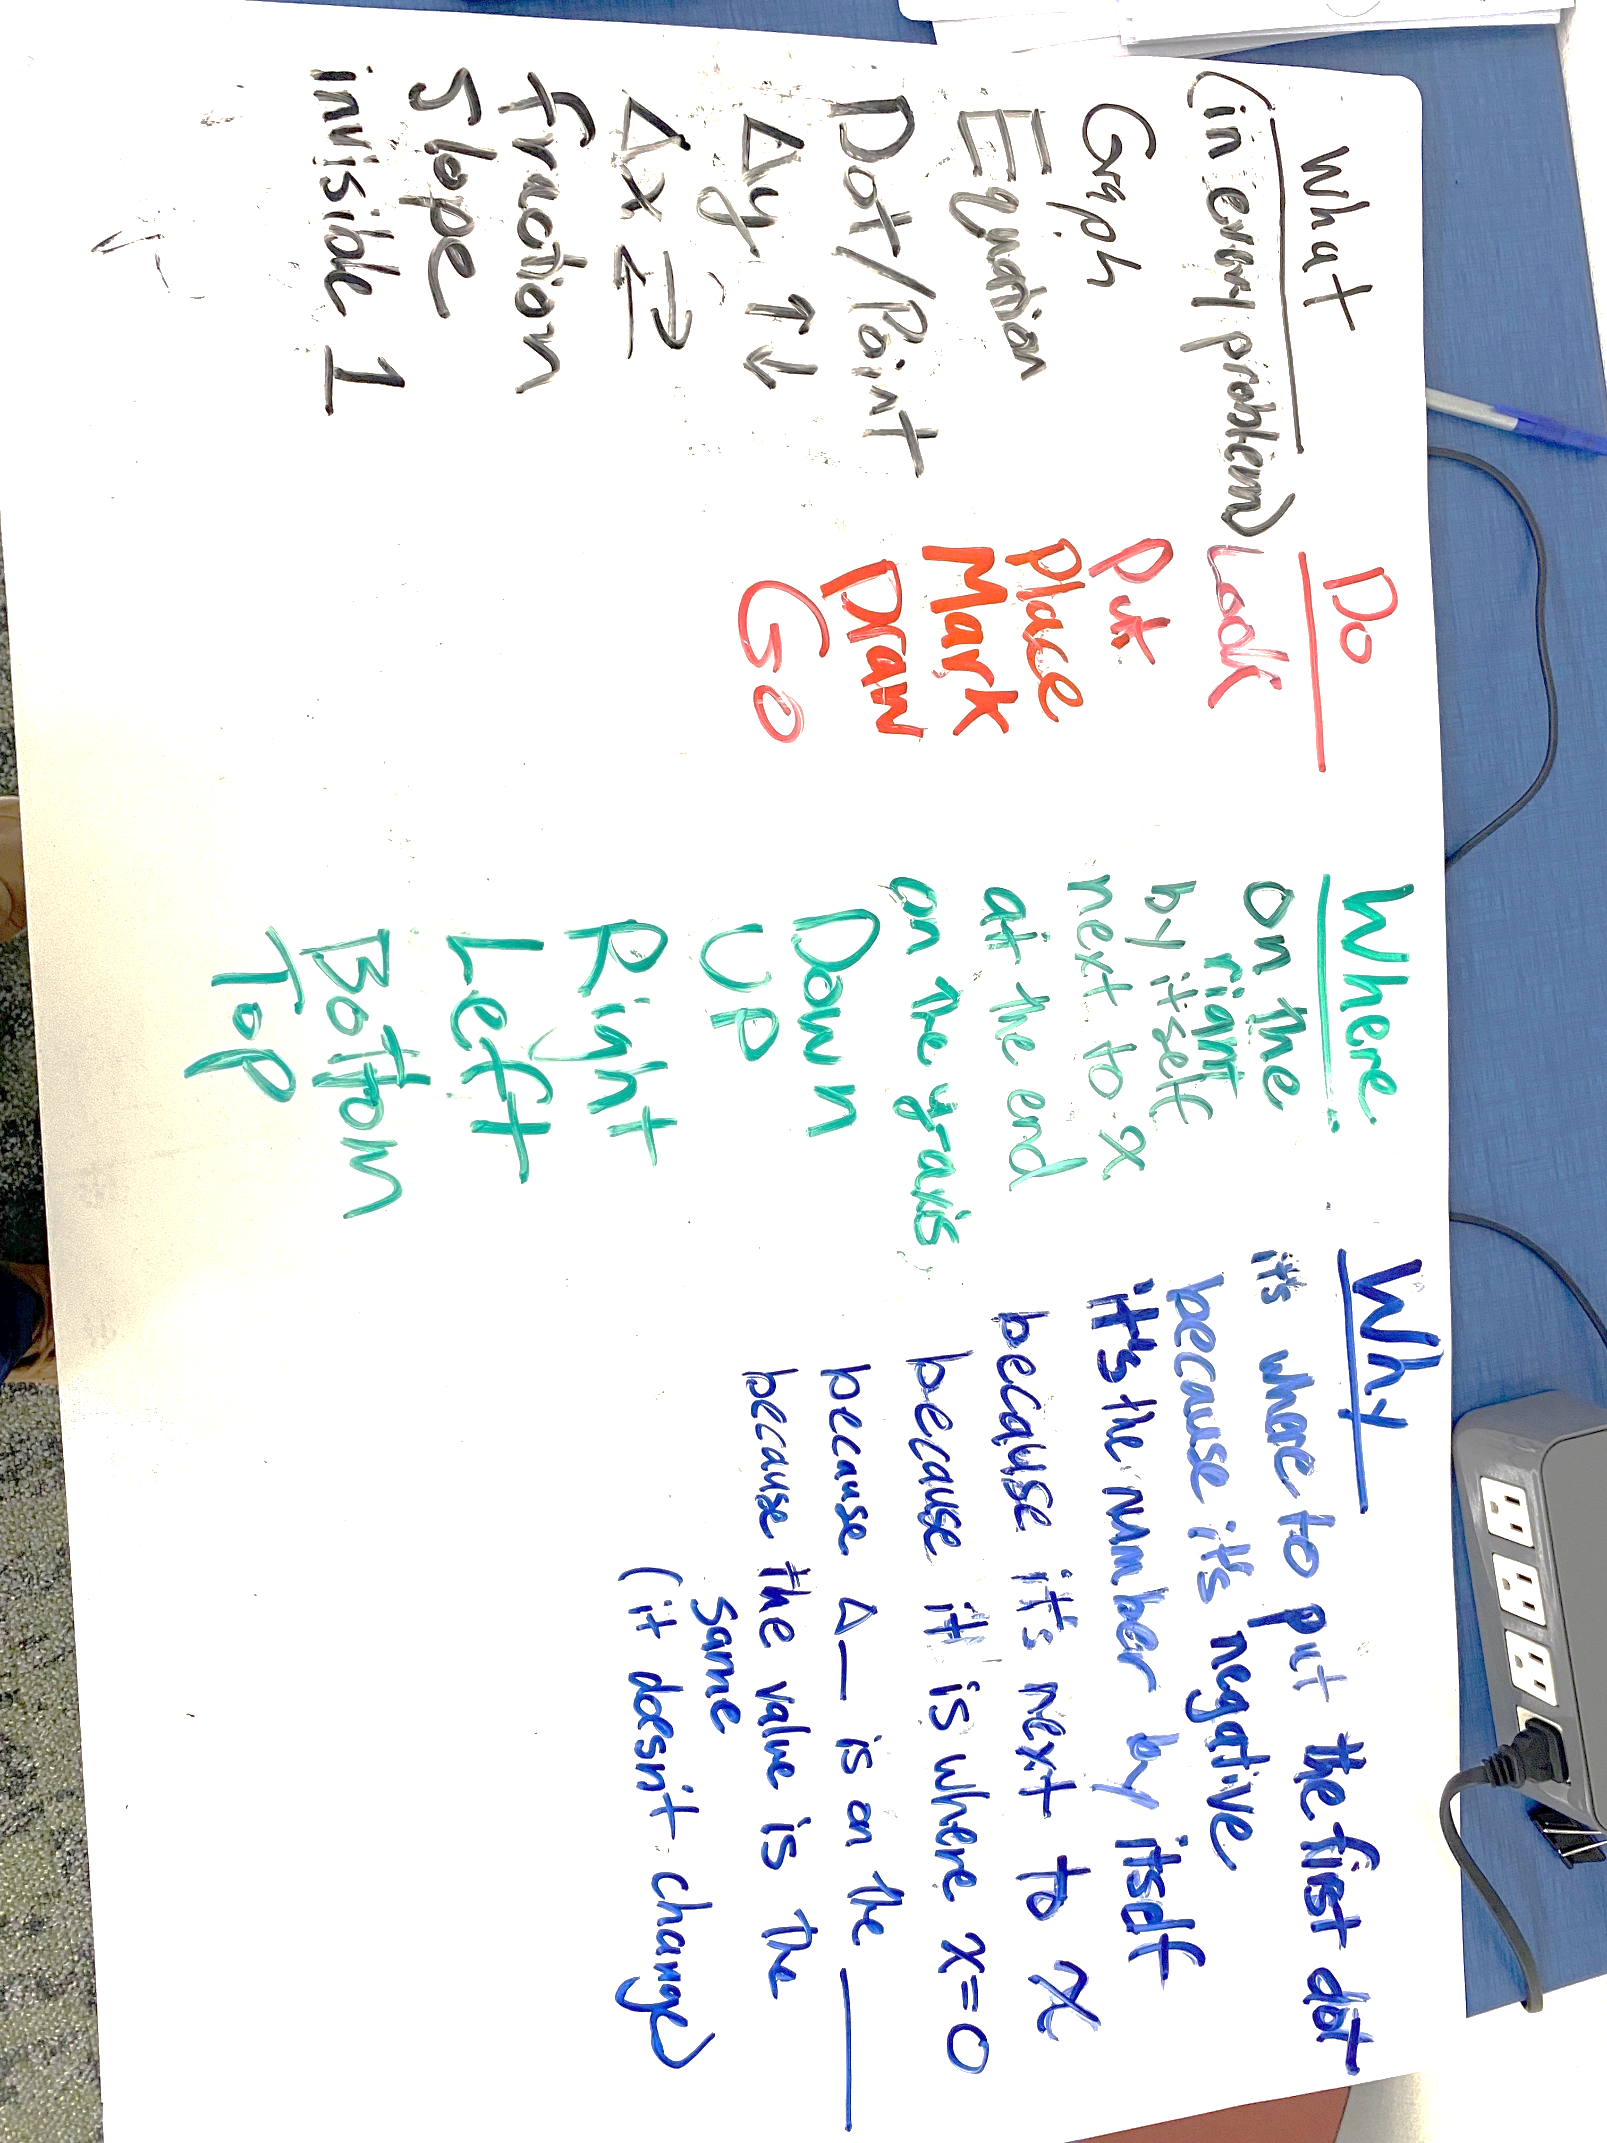 What
(in every problem)
Graph
Equation
Dot/Point
Δy ↑↓
Δx ⇄
fraction
slope
invisible 1
Do
Look
Put
Place
Mark
Draw
Go
Where
on the
right
by itself
next to x
at the end
on the y-axis
Down
UP
Right
Left
Bottom
Top
Why
it's where to put the first dot
because it's negative
it's the number by itself
because it's next to x
because it is where x=0
because Δ__ is on the ____
because the value is the
same
(it doesn't change)